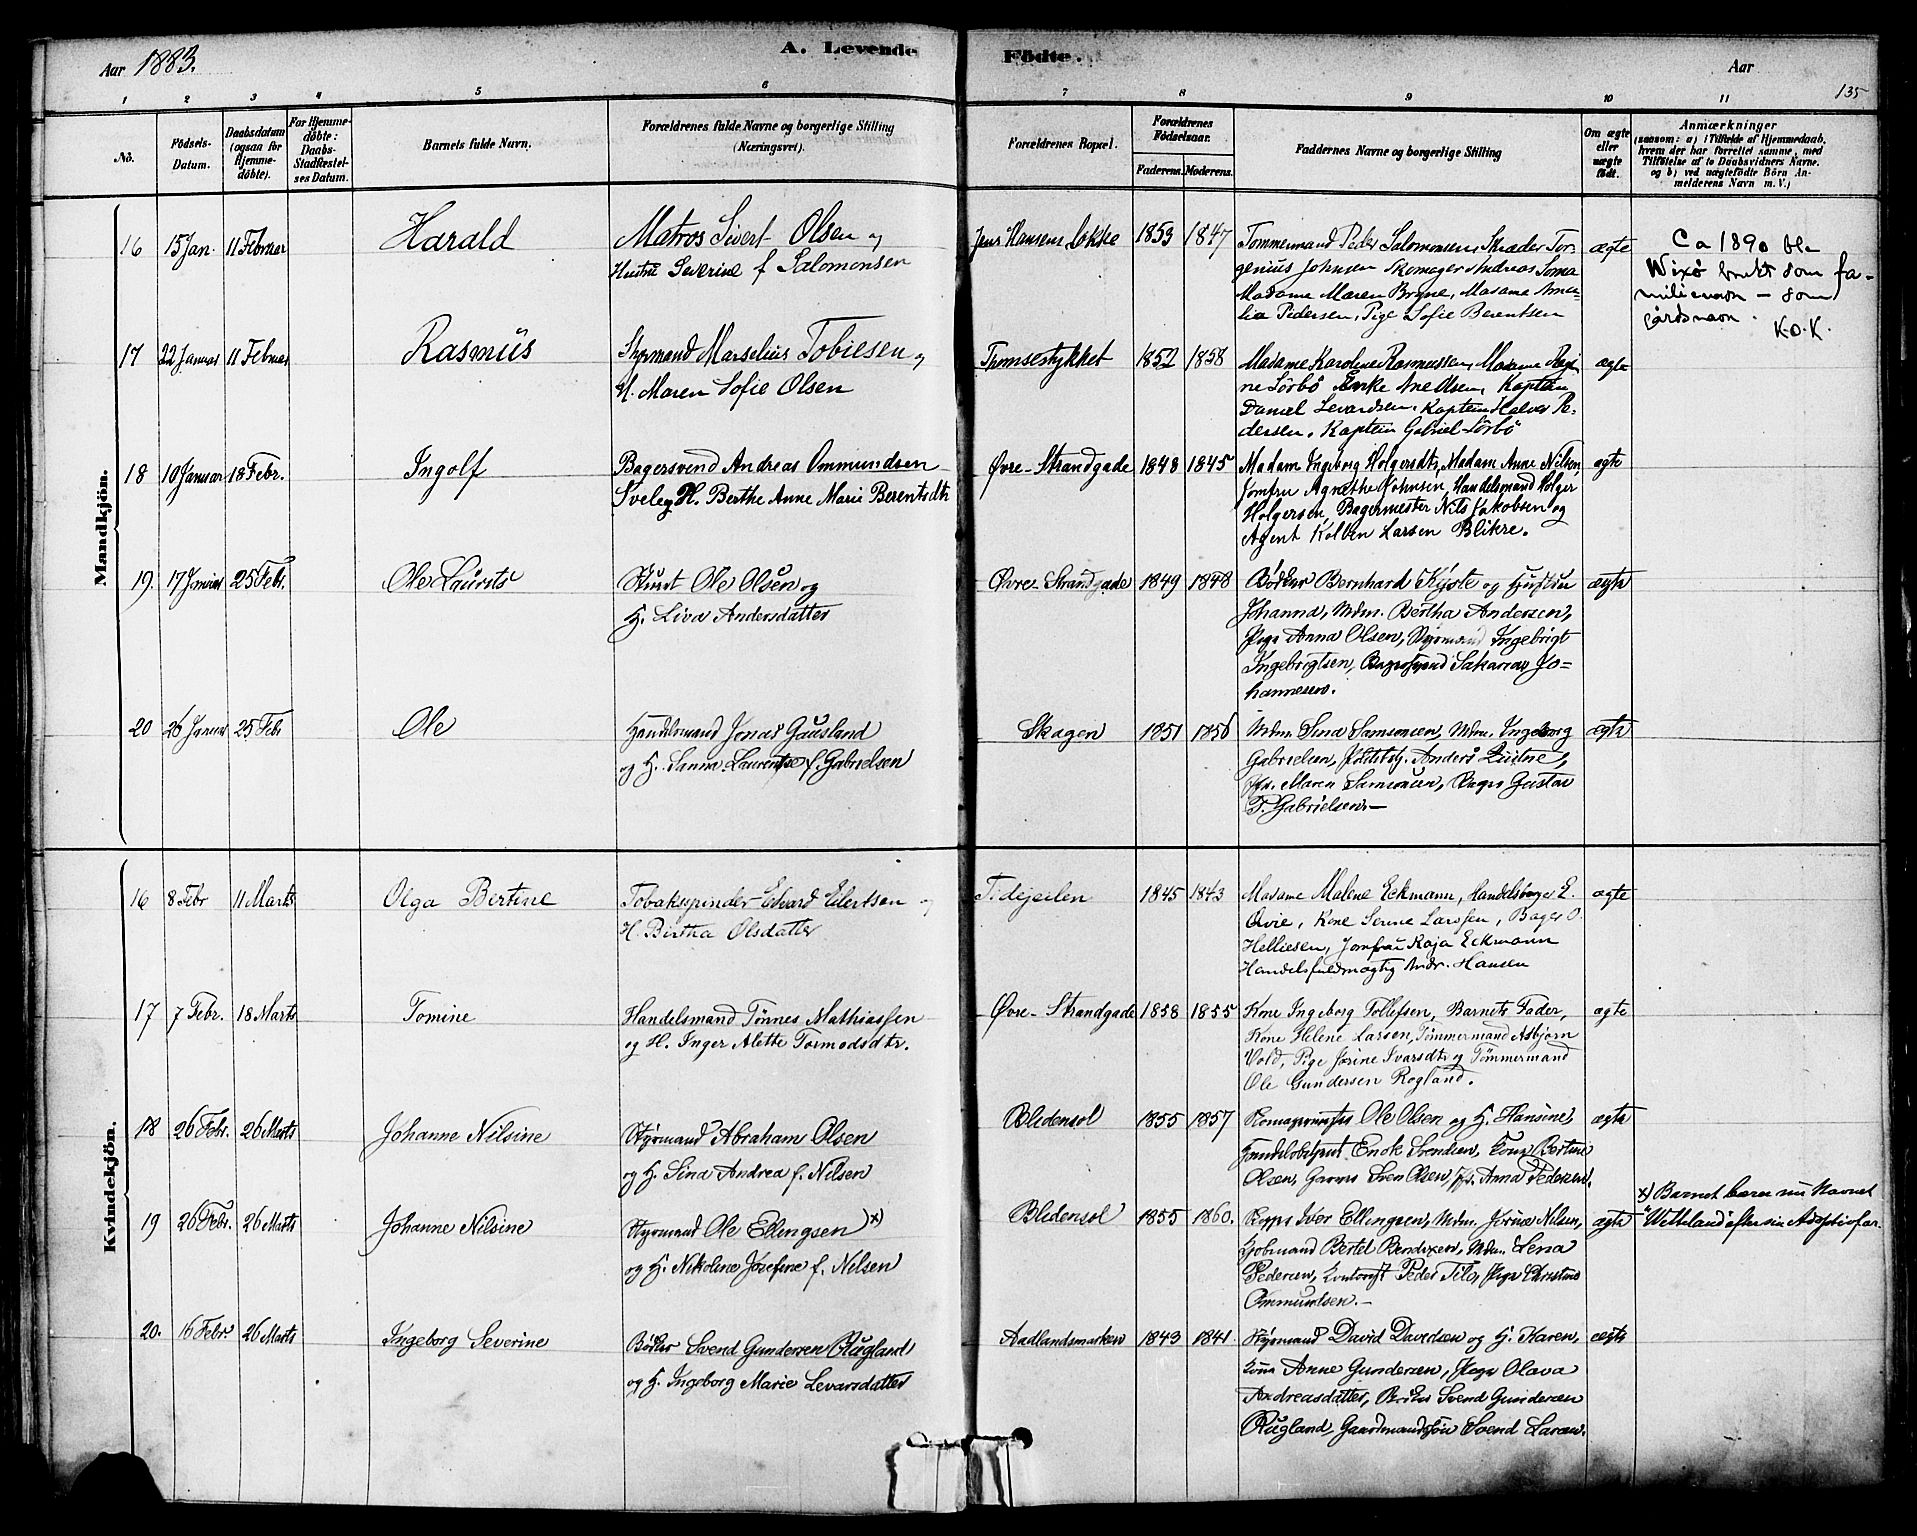 Aar 1883.
A. Levende
Födte.
Aar
135
1 2 3 4 5 6 7 8 9 10 11
No.
Födsels-Datum.
Daabsdatum (ogsaa for Hjemme-döbte).
For Hjemme-döbte: Daabs-Stadfæstel-ses Datum.
Barnets fulde Navn.
Forældrenes fulde Navne og borgerlige Stilling (Næringsvei).
Forældrenes Bopæl.
Forældrenes Födselsaar.
Faderens. Moderens.
Faddernes Navne og borgerlige Stilling
Om ægte eller uægte födt.
Anmærkninger
(saasom: a) i Tilfælde af Hjemmedaab,
hvem der har forrettet samme, med
Tilföielse af to Daabsvidners Navne.
og b) ved uægtefödte Börn An-
melderens Navn m. V.)
Mandkjön.
16 15 Jan. 11 Februar Harald
Matros Sivert Olsen og
Hustru Severine f Salomonsen
Jens Hansens Løkke 1853 1847
Tømmermand Peder Salomonsen, Skræder Tor-
genius Johnsen Skomager Andreas Soma
Madame Maren Bryne, Madame Ama-
lia Pedersen, Pige Sofie Berentsen
ægte
Ca 1890 ble
Wixø brukt som fa-
milienavn – som
gårdsnavn.
K.O.K.
17 22 Januar 11 Februar Rasmus
Styrmand Marselius Tobiesen og
H. Maren Sofie Olsen
Tromsestykket 1852 1858
Madame Karolene Rasmussen, Madame Regi-
ne Sörbö Enke Ane Olsen, Kaptein
Daniel Levardsen, Kaptein Halvor Pe-
dersen, Kaptein Gabriel Sörbö
ægte
18 10 Januar 18 Febr. Ingolf
Bagersvend Andreas Ommundsen
Svele og H. Berthe Anne Marie Berentsdtr
Øvre-Strandgade 1848 1845
Madam Ingeborg Holgersdtr, Madam Anne Nilsen
Jomfru Agnethe Johnsen, Handelsmand Holger
Holgersen, Bagermester Nils Jakobsen og
Agent Kolben Larsen Blikre.
ægte
19. 17 Januar 25 Febr. Ole Laurits
Ole Olsen og
H. Liva Andersdatter
Øvre Strandgade 1849 1848
Bödker Bernhard Kyste og Hustru
Johanna, Mdm. Bertha Andersen,
Pige Anna Olsen, Styrmand Ingebrigt
Ingebrigtsen, Bagersvend Sakarias Jo-
hannesen.
ægte
20 26 Januar 25 Febr Ole
Handelsmand Jonas Gausland
og H. Sanna Laurentse f. Gabrielsen
Skagen 1851 1856
Mdm. Sina Samsonsen, Mdm. Ingeborg
Gabrielsen, Anders
Maren Samsonsen, Gustav
T. Gabrielsen.–
ægte
Kvindekjön.
16 8 Febr 11 Marts Olga Bertine
Tobakspinder Edvard Eilertsen og
H. Birtha Olsdatter
Tidejeilen 1845 1843
Madame Malene Eckmann, Handelsborger E.
Qvie, Kone Serine Larssen, Bager O.
Helliesen, Jomfru Kaja Eckmann
Handelsfuldmægtig Andr. Hansen
ægte
17 7 Febr. 18 Marts Tomine
Handelsmand Tönnes Mathiassen
og H. Inger Alette Tormodsdtr.
Øvre-Strandgade 1858 1855
Kone Ingeborg Tollefsen, Barnets Fader,
Kone Helene Larsen, Tömmermand Asbjörn
Vold, Pige Jorine Ivarsdtr og Tömmermand
Ole Gundersen Rogland.
ægte
18 26 Febr. 26 Marts Johanne Nilsine
Styrmand Abraham Olsen
og H. Sina Andrea f. Nilsen
Bledensol 1855 1857
Ole Olsen og H. Hansine,
Enok Svendsen, Kone Bertine
Olsen, Sven Olsen, Anna Pedersen.
ægte
19 26 Febr. 26 Marts Johanne Nilsine
Styrmand Ole Ellingsen x)
og H. Nikoline Josefine f. Nilsen
Bledensol 1855 1860.
Iver Ellingsen, Mdm. Jorine Nilsen,
Kjöbmand Bertel Bendixen, Mdm. Lena
Pedersen, Peder Tilo, Pige Christine
Ommundsen.–
ægte
x) Barnet bærer nu Navnet
"Wetteland" efter sin Adoptivfar.
20. 16 Febr 26 Marts Ingeborg Severine
Bödker Svend Gundersen Rugland
og H. Ingeborg Marie Levarsdatter
Aadlandsmarken 1843 1841.
Styrmand David Davidsen og H. Karen,
Kone Anne Gundersen, Pige Olava
Andreasdatter, Bödker Svend Gundersen
Rugland, Gaardmandssön Svend Larsen.
ægte